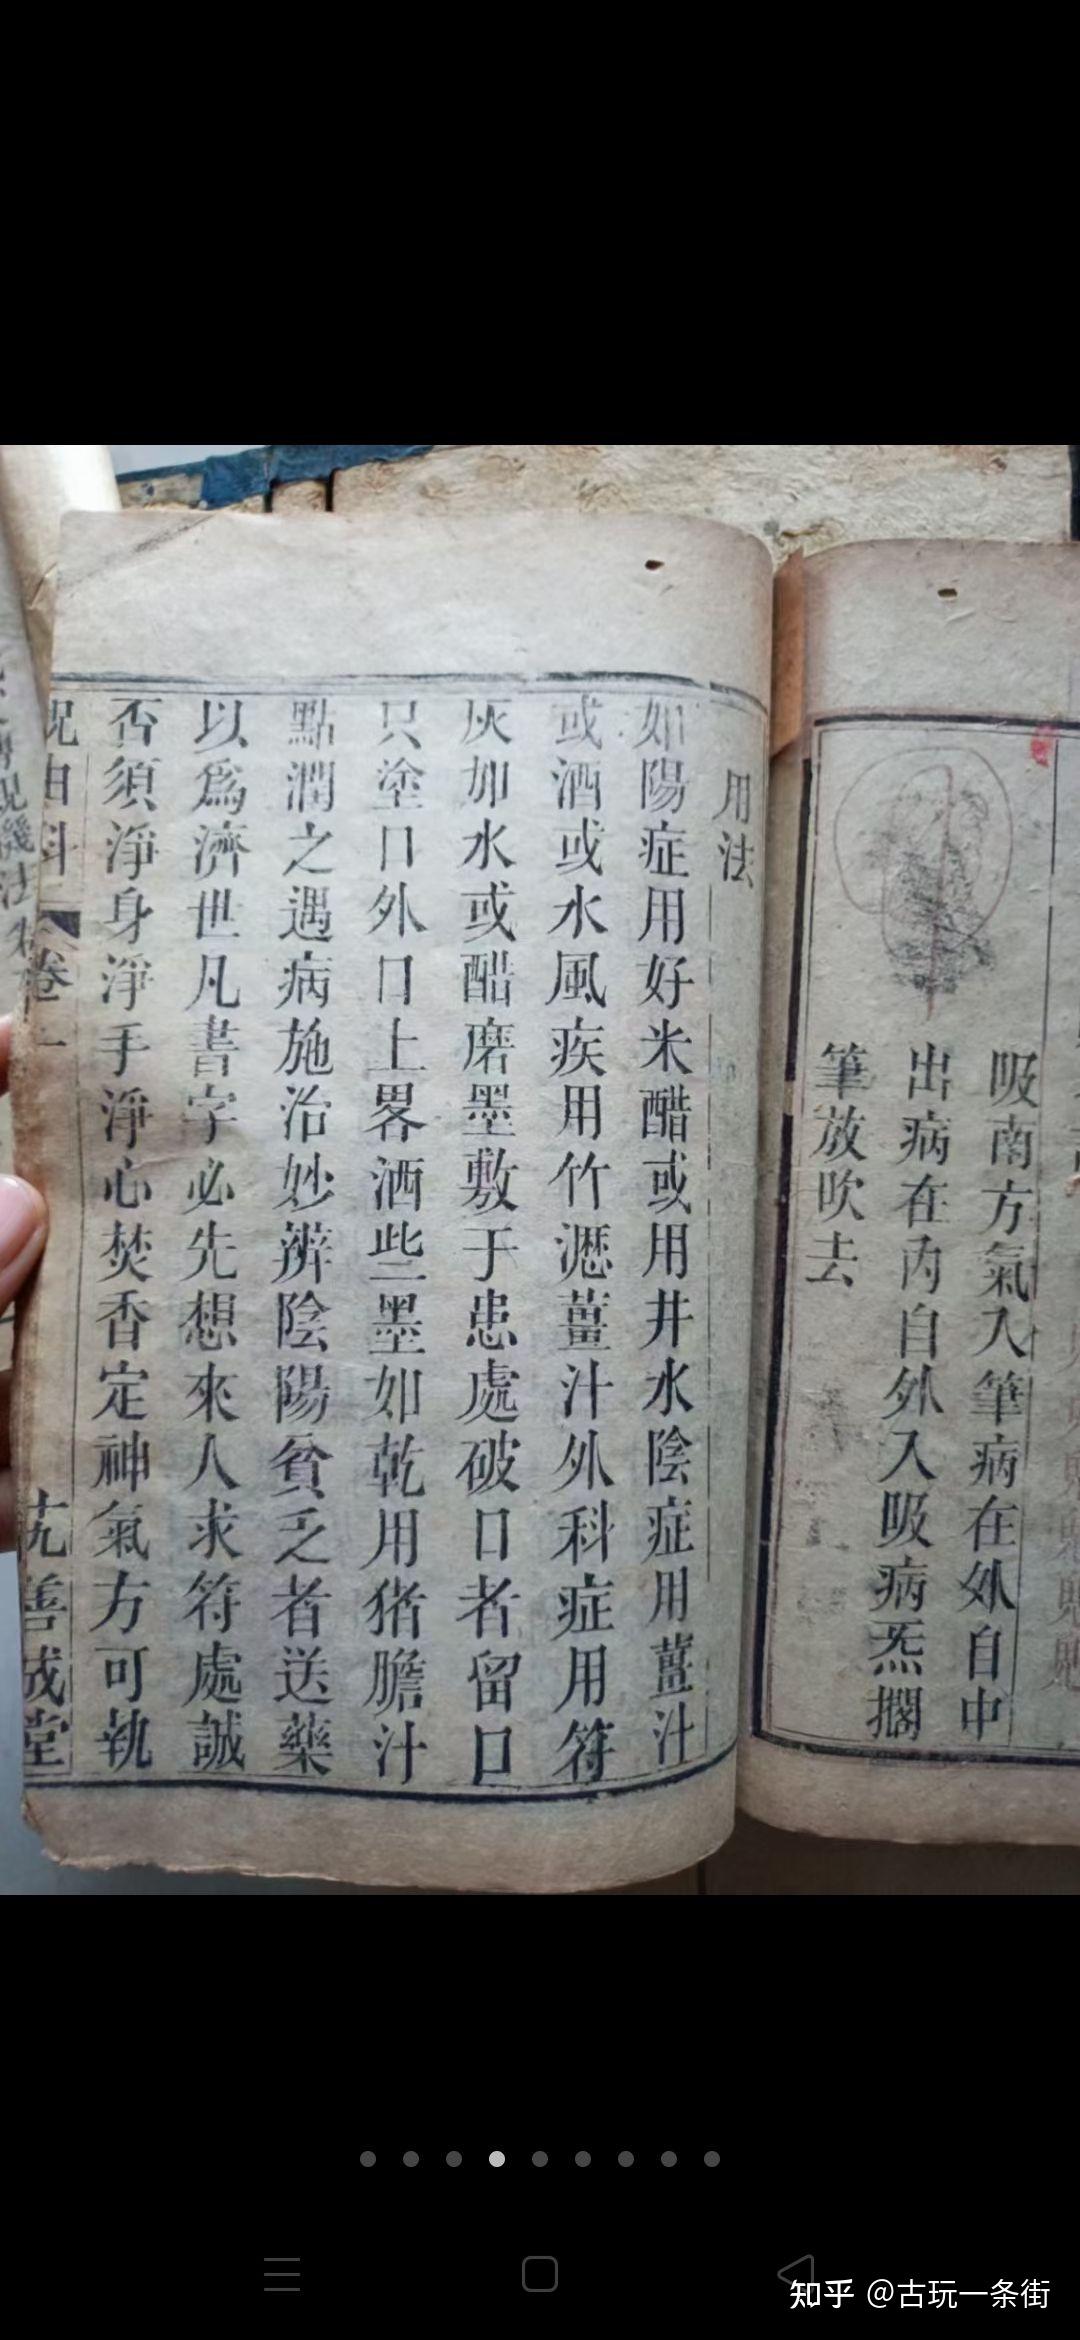 吸南方氣入筆病在外自中
出病在內自外入吸病炁擱
筆放吹去
用法
如陽症用好米醋或用井水陰症用薑汁
或酒或水風疾用竹瀝薑汁外科症用符
灰加水或醋磨墨敷于患處破口者留口
只塗口外口上畧洒些墨如乾用猪膽汁
點潤之遇病施治妙辨陰陽貧乏者送藥
以爲濟世凡書字必先想來人求符處誠
否須淨身淨手淨心焚香定神氣方可執
祝由科 卷一 善成堂
知乎 @古玩一条街